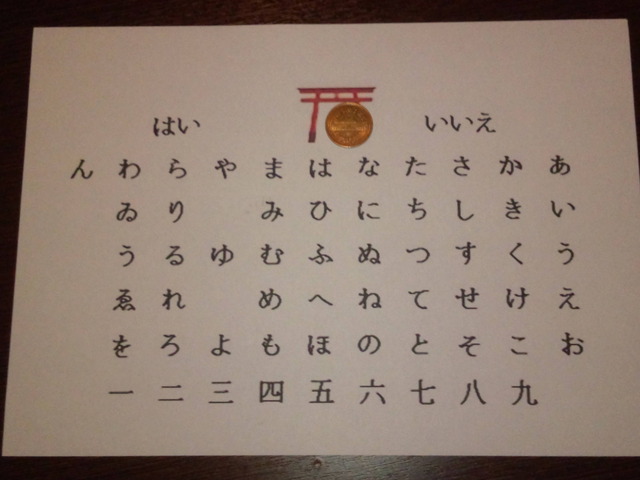 はい いいえ
ん わ ら や ま は な た さ か あ
ゐ り み ひ に ち し き い
う る ゆ む ふ ぬ つ す く う
ゑ れ め へ ね て せ け え
を ろ よ も ほ の と そ こ お
一 二 三 四 五 六 七 八 九